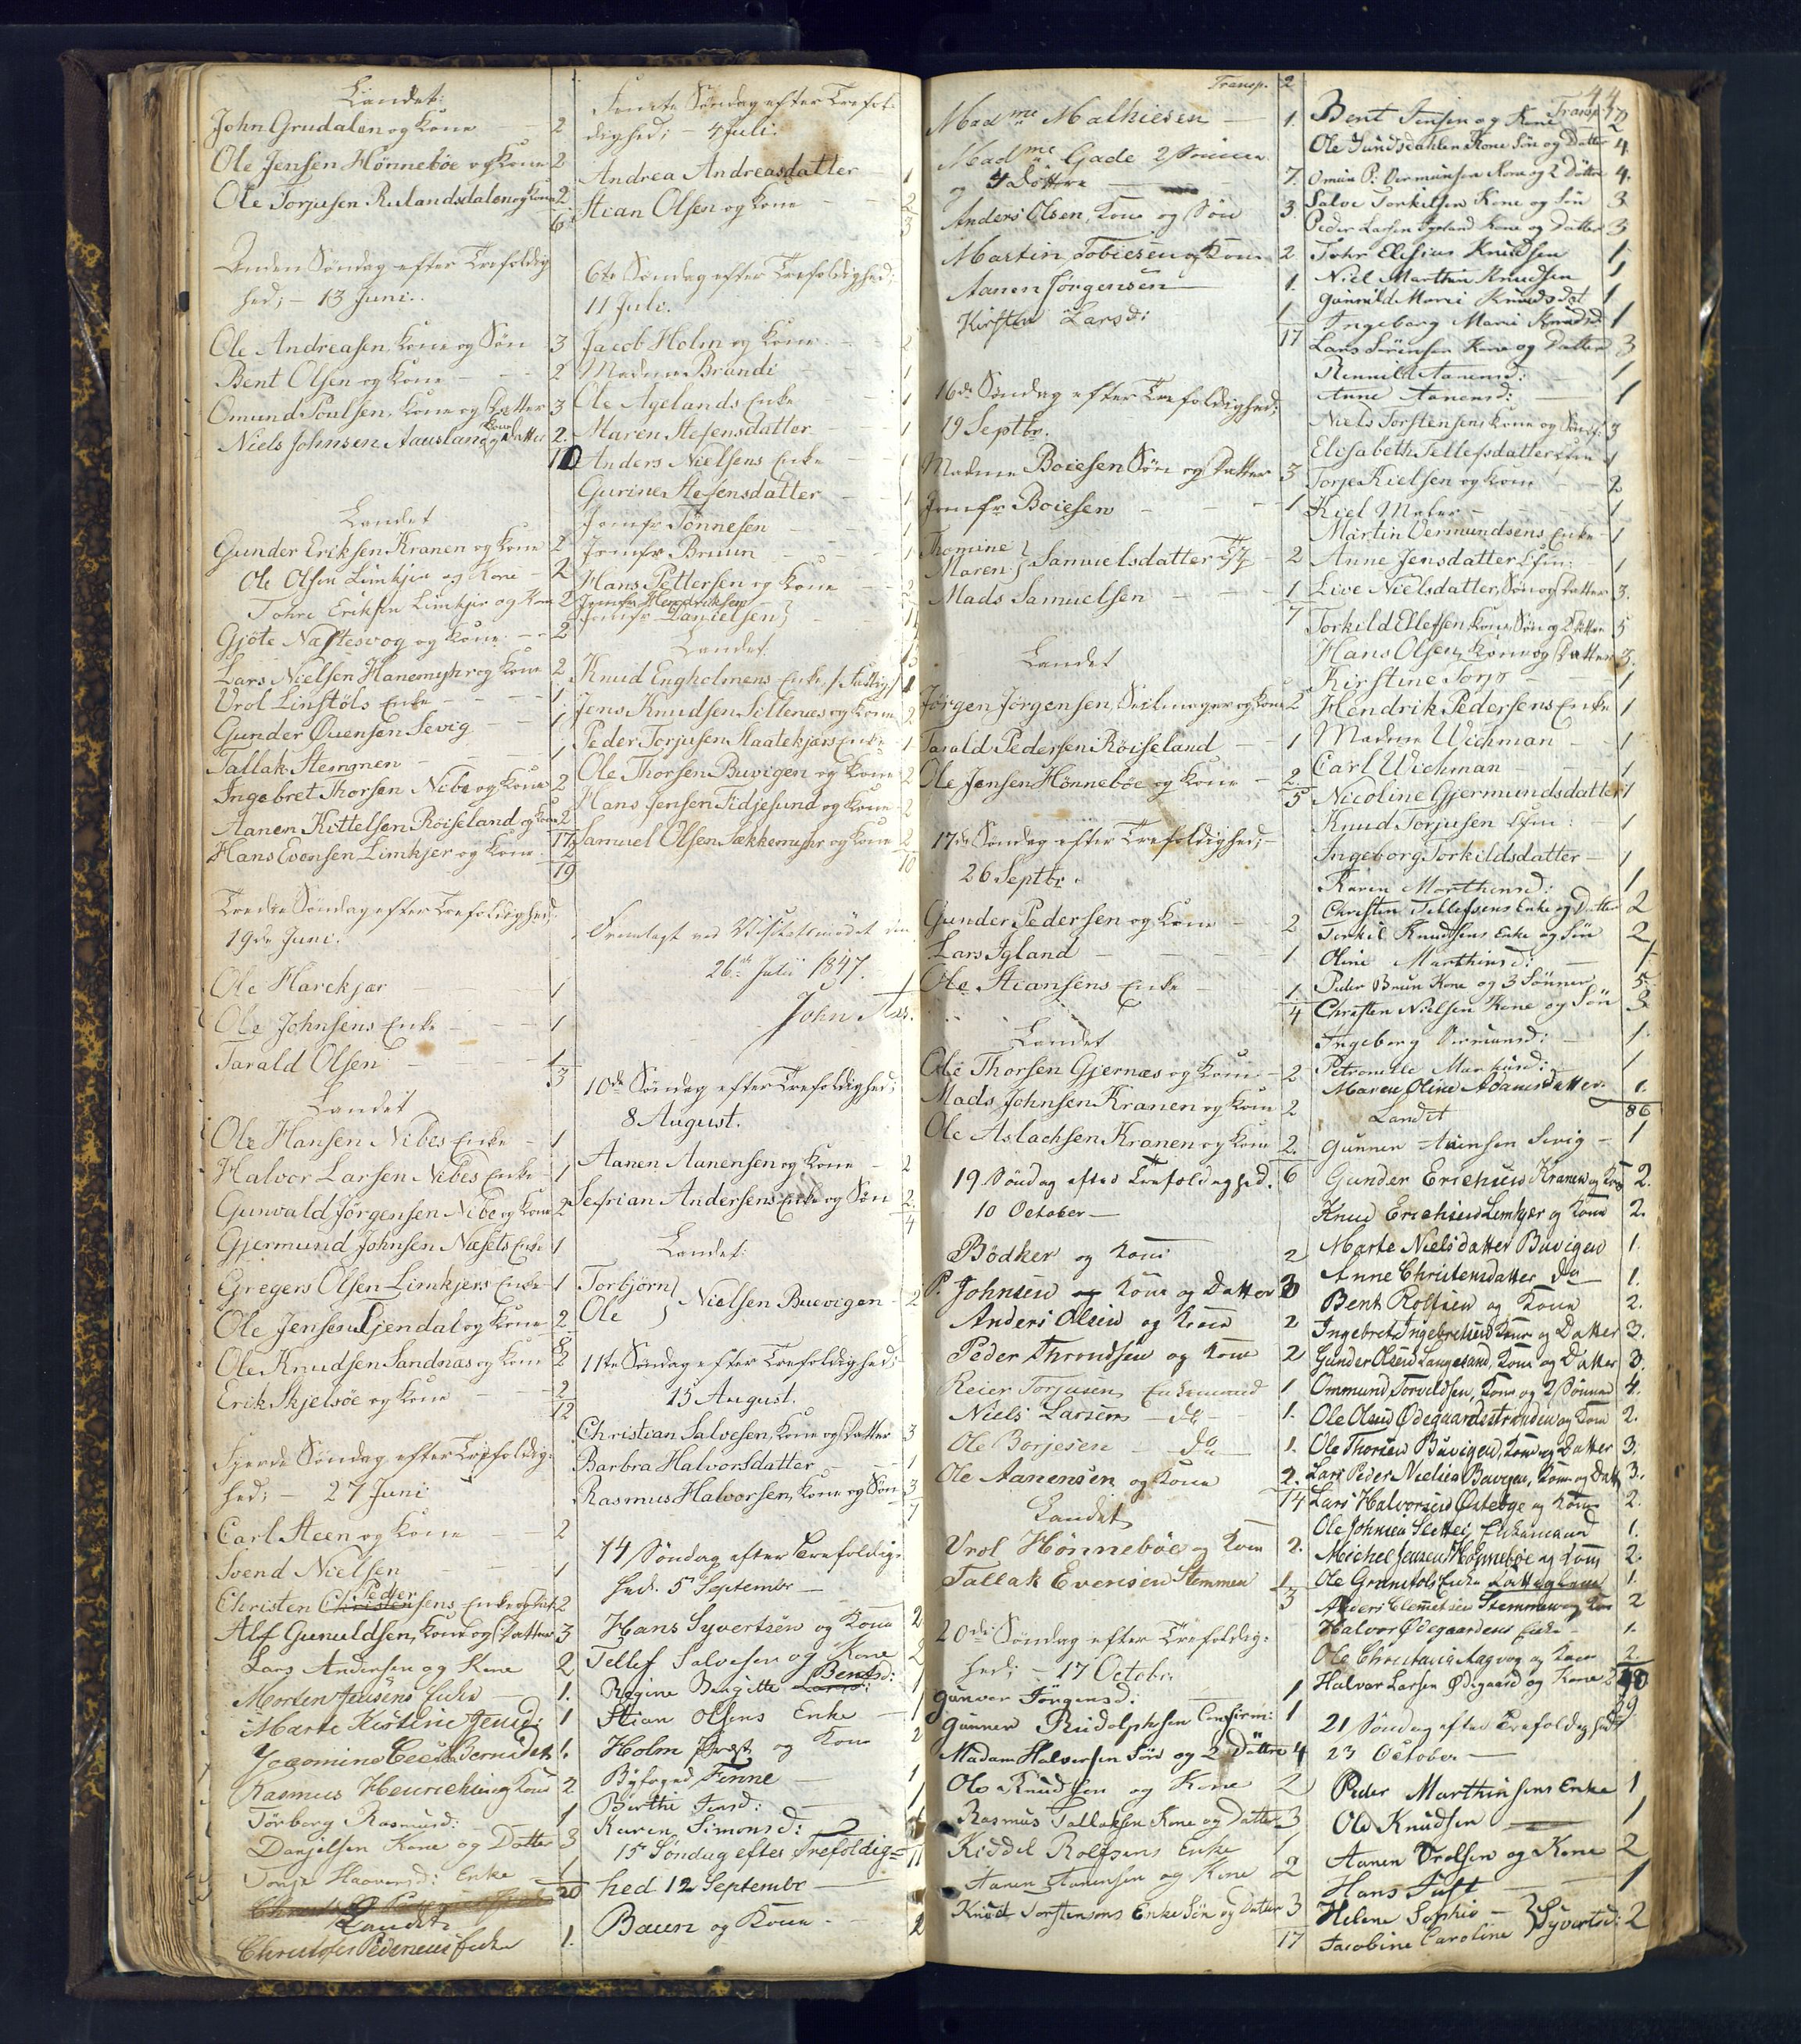 Landet:
John Grudalen og Kone 2
Ole Jensen Hønnebøe og Kone 2
Ole Torjusen Rulandsdalen og Kone 2
6
Anden Søndag efter Trefoldig
hed; – 13 Juni.
Ole Andreasen, Kone og Søn 3
Bent Olsen og Kone – 2
Omund Poulsen, Kone og Datter 3
Niels Johnsen Aausland Kone og Datter 2.
10
Landet
Gunder Eriksen Kranen og Kone 2
Ole Olsen Limkjer og Kone – 2
Tohre Eriksen Limkjer og Kone 2
Gjöte Næstesvog og Kone – 2
Lars Nielsen Hanemyhr og Kone 2
Vrol Linstöls Enke – 1
Gunder Ouensen Sevig – 1
Tallak Stemmen – 1
Ingebret Thorsen Nibe og Kone 2
Aanen Kittelsen Röiseland og Kone 2
17
Hans Evensen Limkjer og Kone 2
19
Tredie Søndag efter Trefoldighed;
19de Juni.
Ole Harekjær 1
Ole Johnsens Enke 1
Tarald Olsen 1
3
Landet
Ole Hansen Nibes Enke – 1
Halvor Larsen Nibes Enke 1
Gunvald Jörgensen Nibe og Kone 2
Gjermund Johnsen Næsets Enke 1
Gregers Olsen Limkjers Enke 1
Ole Jensen Ljendal og Kone 2
8
Ole Knudsen Sandnæs og Kone 2
Erik Skjelsöe og Kone 2
12
Fjerde Søndag efter Trefoldig:
hed; – 27 Juni
Carl Steen og Kone – 2
Svend Nielsen 1
Christen Pedersens Enke og Dat. 2
Alf Gunuldsen, Kone og Datter 3
Lars Andersen og Kone 2
Morten Jensens Enke – 1.
Marte Kistine Jensd: 1
Jacomine Berntsdt 1.
Rasmus Henrichsen og Kone 2
Torborg Rasmusd: 1
Danjelsen Kone og Datter 3
Tonje Haavorsd: Enke 1
20
Landet
Christofer Pedersens Enke 1.
Femte Søndag efter Trefol:
dighed; – 4 Juli.
Andrea Andreasdatter – 1
Stian Olsen og Kone – 2
3
6te Søndag efter Trefoldighed;
11 Juli.
Jacob Holm og Kone – 2
Madame Brandi – 1
Ole Agelands Enke – 1
Maren Stefensdatter – 1
Anders Nielsens Enke – 1
Gurine Stefensdatter – 1
Jomfr Tönnesen – 1
Jomfr Bruun – 1
Hans Pettersen og Kone – 2
Jomfr Hendriksen –
Jomfr Danielsen
13
Landet
Knud Engholmens Enke / Fattig / 1
Jens Knudsen Sillenæs og Kone 2
Peder Torjusen Staalekjærs Enke 1
Ole Thorsen Buvigen og Kone 2
Hans Jensen Tidjesund og Kone 2
Samuel Olsen Sækkemyhr og Kone 2
10
Fremlagt ved Visitatsmødet den
26de Julii 1847.
John Aas.
10de Søndag efter Trefoldighed;
8 August.
Aanen Aanensen og Kone – 2
Sefrian Andersens Enke og Søn 2.
4
Landet:
Torbjörn
Ole } Nielsen Buevigen – 2
11te Søndag efter Trefoldighed;
15 August.
Christian Salvesen, Kone og Datter 3
Barbra Halvorsdatter 1
Rasmus Halvorsen, Kone og Søn 3
7
14 Søndag efter Trefoldig:
hed. 5 Septembr –
Hans Syvertsen og Kone 2
Tellef Salvesen og Kone 2
Regine Birgitte Bentsd: 1
Stian Olsens Enke – 1
Holm Præst og Kone 2
Byfoged Finne 1
Birthe Jensd: 1
Karen Simonsd: 1
11
15 Søndag efter Trefoldig=
hed 12 Septembr –
Baun og Kone – 2
Transp. 2
Madme Mathiesen – 1.
Madme Gade 2 Sönner
og 4 Döttre – 7.
Anders Olsen, Kone og Søn 3.
Martin Tobiesen og Kone 2
Aanen Jörgensen – 1.
Kirsten Larsd: 1
17
16de Søndag efter Trefoldighed;
19 Septbr.
Madame Boiesen Søn og Datter 3
Jomfr Boiesen – 1
Thomine
Maren } Samuelsdatter 2
Mads Samuelsen – 1
7
Landet
Jörgen Jörgensen Seilmager og Kone 2
Tarald Pedersen Röiseland – 1
Ole Jensen Hönneböe og Kone – 2.
5
17de Søndag efter Trefoldighed; –
26 Septbr.
Gunder Pedersen og Kone – 2
Lars Igland – 1
Ole Stiansens Enke – 1.
4
Landet
Ole Thorsen Gjernæs og Kone – 2
Mads Johnsen Kranen og Kone 2
Ole Aslachsen Kranen og Kone 2.
6
19 Søndag efter Trefoldighed.
10 October –
Bödker og Kone 2
P. Johnsen Kone og Datter 3
Anders Olsen og Kone 2
Peder Throndsen og Kone 2
Reier Torjusen Enkemand 1
Niels Larsen – do – 1.
Ole Borjesen – do 1.
Ole Aanensen og Kone 2.
14
Landet
Vrol Hönneböe og Kone 2.
Tallak Evensen Stemmen 1
3
20de Søndag efter Trefoldig:
hed; – 17 Octobr.
Gunvor Jörgensd: 1
Gunner Rudolphsen Confirm: 1
Madam Halvorsen Søn og 2 Döttre 4
Ole Knudsen og Kone 2
Rasmus Tallaksen Kone og Datter 3
Kiddel Rolfsens Enke 1
Aanen Aanensen og Kone 2
Knud Torstensens Enke Søn og Datter 3
17
44
Transp: 17
Bent Jensen og Kone 2
Ole Sundsdahlen Kone Søn og Datter 4
Omun P: Vermundsen Kone og 2 Döttre 4.
Salve Torkilsen Kone og Søn 3
Peder Larsen Igeland Kone og Datter 3
Tohr Elisius Knudsen 1.
Niel Marthin Knudsen 1
Gunnild Marie Knudsdat 1
Ingeborg Marie Knudsd. 1
Lars Sörensen Kone og Datter 3
Rennild Aanensd: – 1
Anne Aanensd: – 1
Niels Torstensen Kone og Søn 3
Elisabeth Tellefsdatter 1
Torje Kielsen og Kone – 2
Kiel Maler – 1
Martin Vermundsens Enke – 1
Anne Jensdatter 1
Live Nielsdatter, Søn og Datter 3.
Torkild Ellefsen Kone, Søn og Datter 5
Hans Olsen, Kone og Datter 3.
Kirstine Torjs – 1
Hendrik Pedersens Enke 1
Madame Wichman – 1
Carl Wichman – 1
Nicoline Gjermundsdatter 1
Knud Torjusen 1
Ingeborg Torkildsdatter – 1
Karen Marthinsd: 1
Christen Tellefsens Enke og Datter 2
Terkel Knudsens Enke og Søn 2
Oline Marthinsd: 1.
Peder Bruun Kone og 3 Sönner 5.
Christen Nielsen Kone og Søn 3
Ingeborg Vermundsd: – 1.
Petronelle Markusd: 1
Maren Oline Adamsdatter. 1.
86
Landet
Gunner Auensen Sevig – 1
Gunder Erichsen Kranen og Kone 2.
Knud Erichsen Lemkjær og Kone 2.
Marte Nielsdatter Buvigen 1.
Anne Christensdatter do 1.
Bent Rolfsen og Kone 2.
Ingebret Ingebretsen Kone og Datter 3.
Gunder Olsen Langesand, Kone og Datter 3.
Ommund Torvildsen, Kone og 2 Sønner 4.
Ole Olsen Ødegaardsstranden og Kone 2.
Ole Thorsen Buvigen, Kone og Datter 3.
Lars Peder Nielsen Buvigen, Kone og Datt 3.
Lars Halvorsen Østebge og Kone 2.
Ole Johnsen Slettei Enkemand 1.
Michel Jensen Hönneböe og Kone 2.
Ole Grunstols Enke 1.
Anders Clemetsen Stemmen og Kone 2
Halvor Ødegaardens Enke – 1.
Ole Christensen Aagvog og Kone 2.
Halvor Larsen Ødegaard og Kone 2
21 Søndag efter Trefoldighed
23 October –
Peder Marthinsens Enke 1
Ole Knudsen – 1
Aanen Vrolsen og Kone 2
Hans Tuft – 1
Helene Sophie –
Jacobine Caroline } Syvertsd: 2